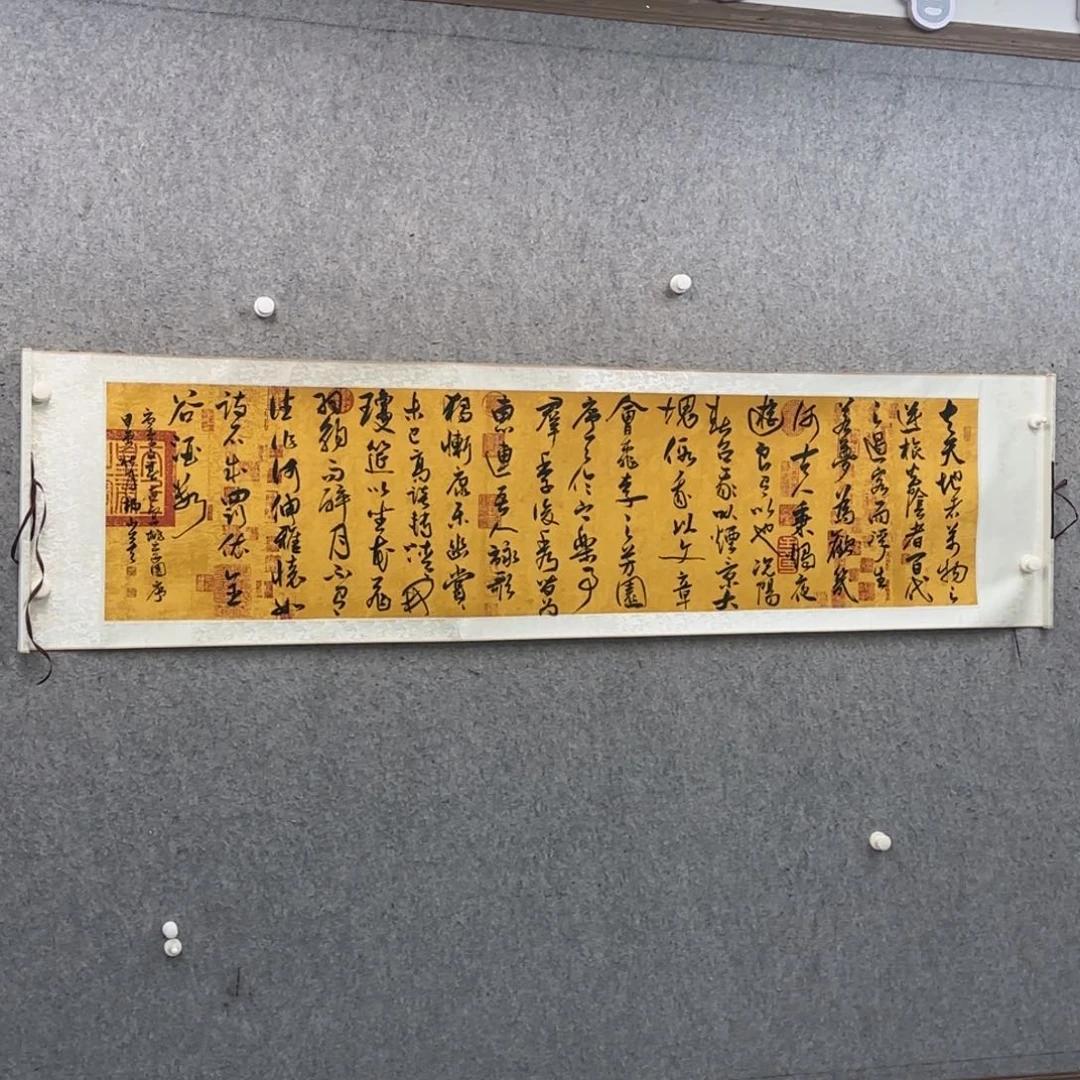 夫天地者萬物之
逆旅光陰者百代
之過客而浮生
若夢為歡幾
何古人秉燭夜
遊良有以也況陽
春召我以煙景大
塊假我以文章
會桃李之芳園
序天倫之樂事
群季俊秀皆為
惠連吾人詠歌
獨慚康樂幽賞
未已高談轉清開
瓊筵以坐花飛
羽觴而醉月不有
佳作何伸雅懷如
詩不成罰依金
谷酒數
桃李園序